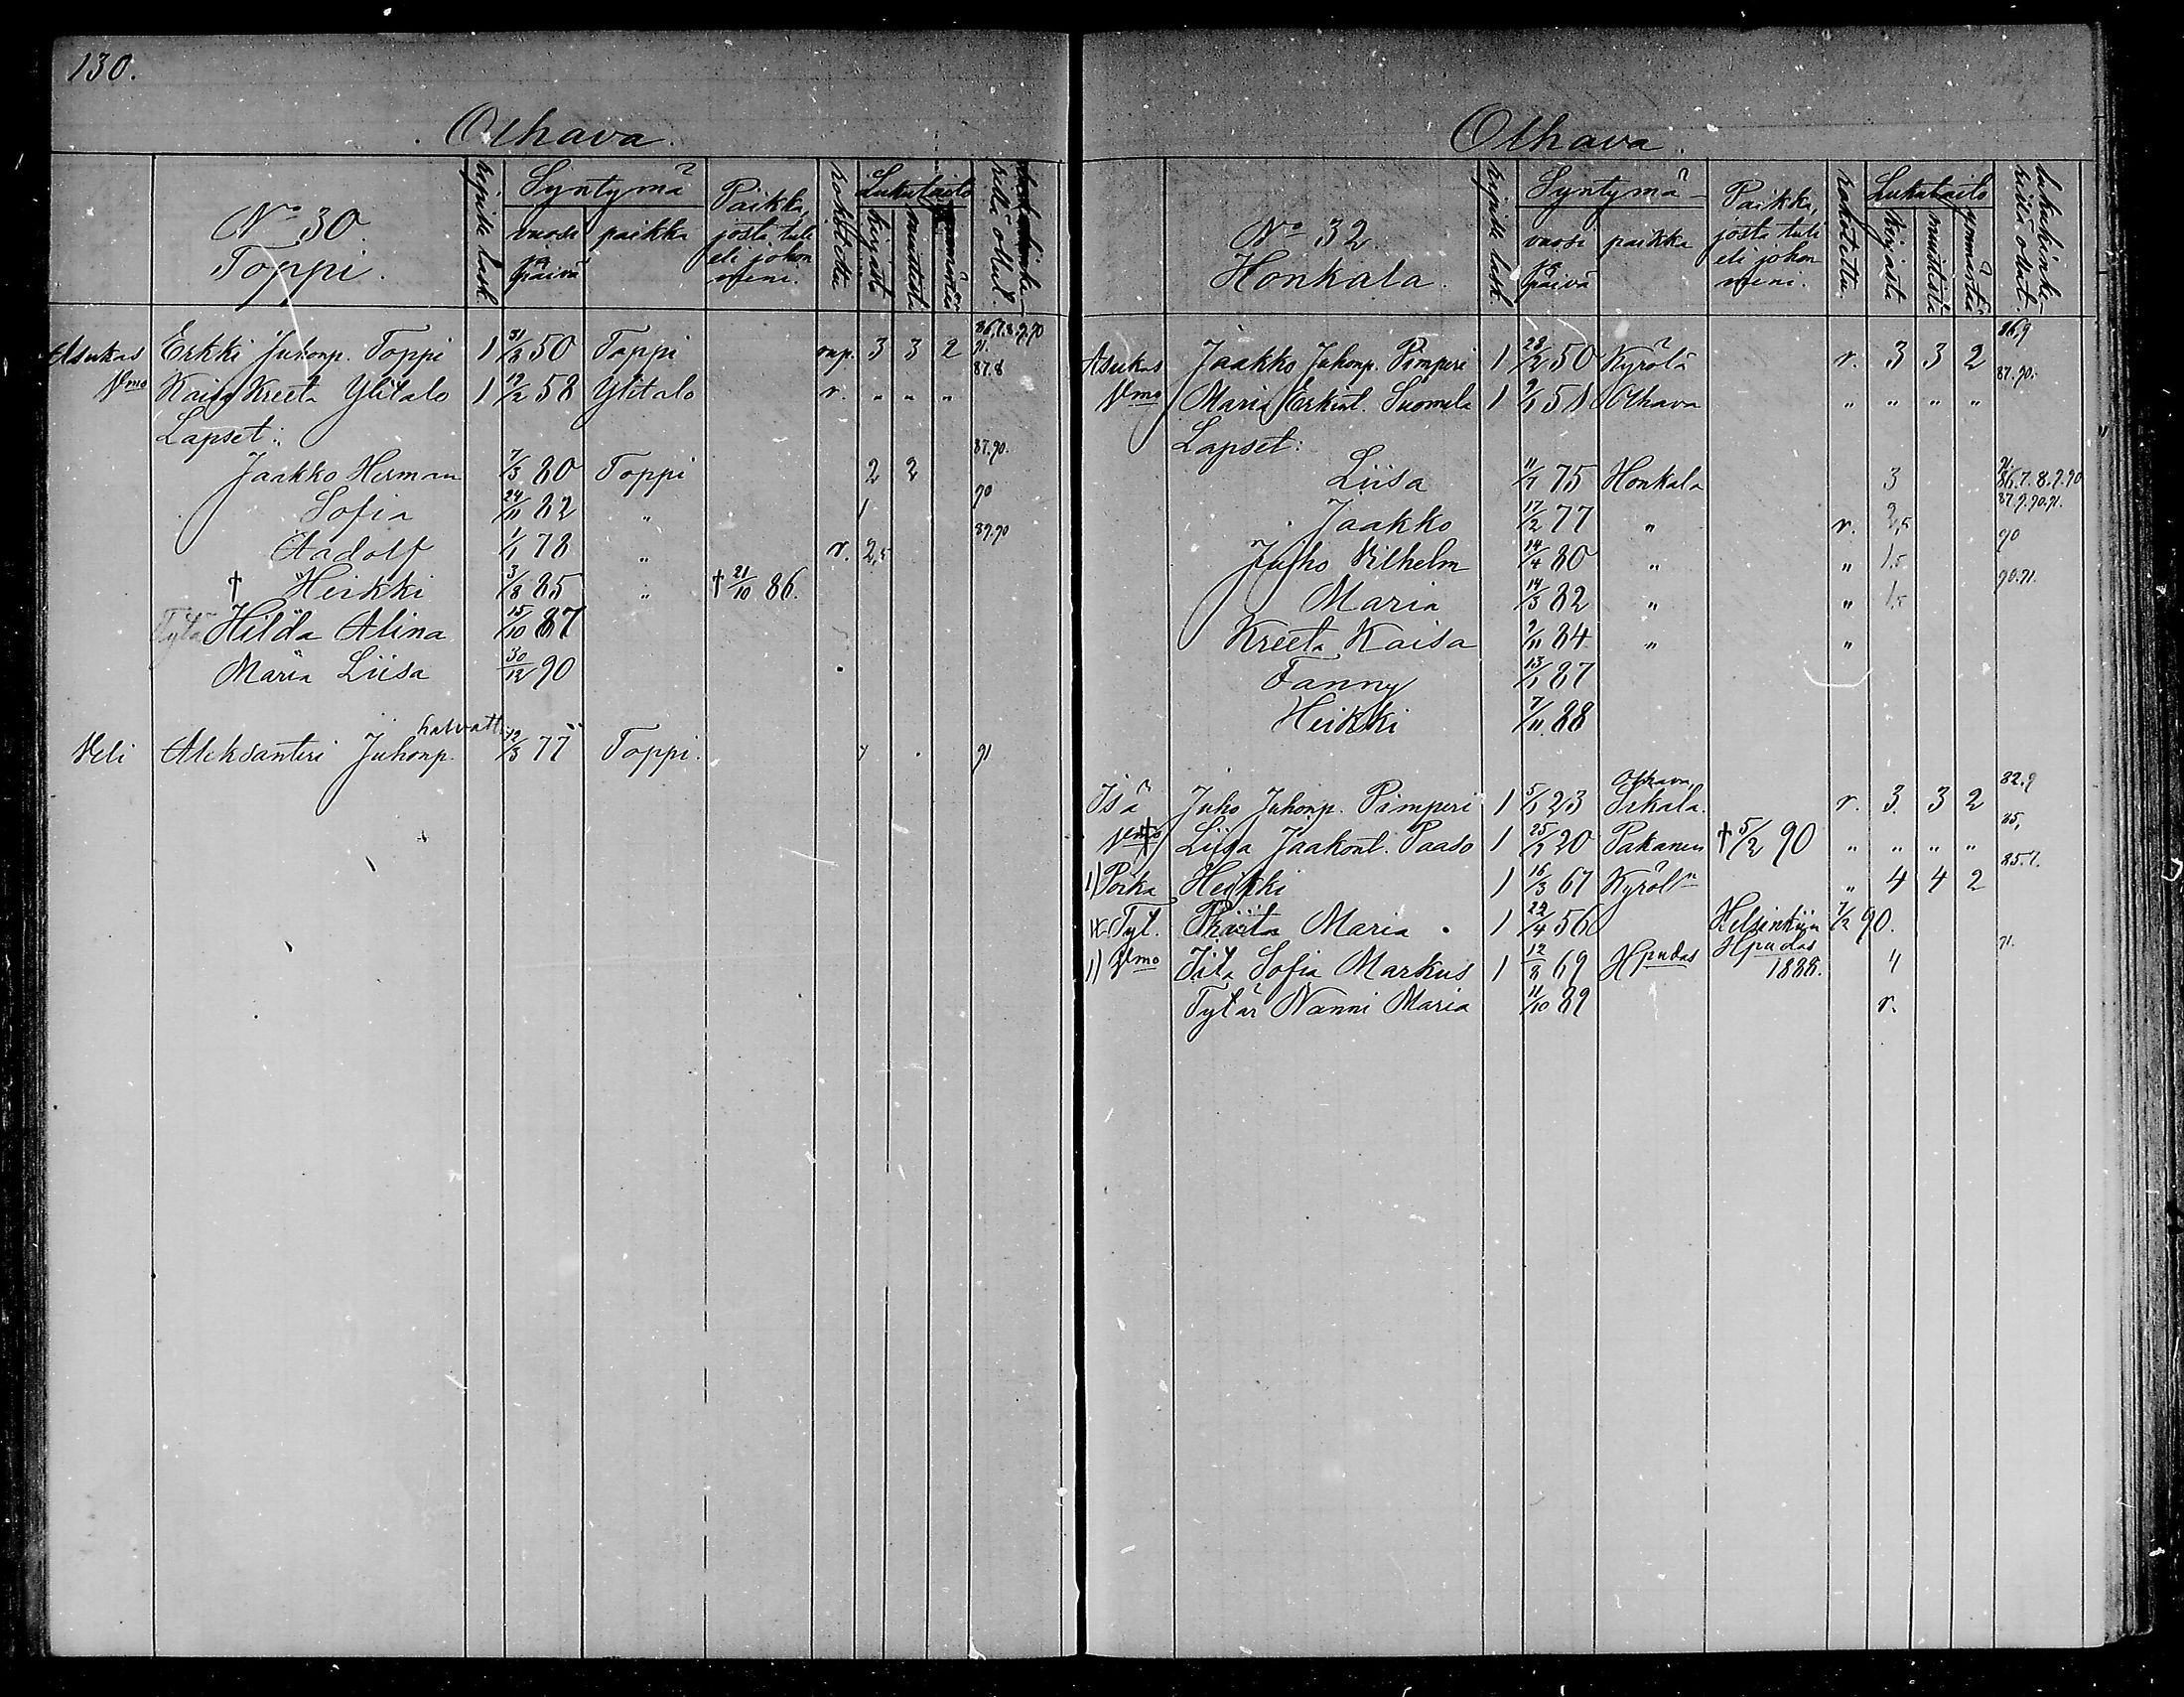 130.
Olhava.
No 30
Toppi.
ripille lask.
Syntymä
vuosi ja päivä
paikka
Paikka, josta tuli eli johon meni.
rokotettu
Lukutaito
kirjasta
muistista
ymmärtää
lukukinkerillä ollut.
Asukas Erkki Juhonp. Toppi 1 31/3 50 Toppi rup. 3 3 2 86.7.8.9.90 91.
Vmo Kaisa Kreeta Ylitalo 1 19/2 58 Ylitalo r. " " " 87.8
Lapset:
Jaakko Herman 7/3 80 Toppi 2 2 87.90.
Sofia 24/11 82 " 1 90
Aadolf 1/1 78 " r. 2,5 89.90
† Heikki 3/8 85 " † 21/10 86.
Tytä Hilda Alina 15/10 87
Maria Liisa 30/12 90
Veli Aleksanteri Juhonp. halvatt. 12/3 77 Toppi. 91
Olhava.
No 32.
Honkala.
ripille lask.
Syntymä-
vuosi ja päivä
paikka
Paikka, josta tuli eli johon meni.
rokotettu.
Lukutaito
kirjasta
muistista
ymmärtää
lukukinkerillä ollut.
Asukas Jaakko Juhonp. Pimperi 1 28/2 50 Kyrölä r. 3 3 2 86.9
Vmo Maria Erkint. Suomela 1 9/1 51 Olhava " " " " 87.90.
Lapset:
Liisa 11/7 75 Honkala 3 91. 86.7.8.9.90
Jaakko 17/2 77 " r. 2,5 87.9.90.91.
Juho Vilhelm 14/4 80 " " 1.5 90
Maria 14/3 82 " " 1,5 90.91.
Kreeta Kaisa 9/11 84 " "
Fanny 13/1 87
Heikki 7/11 88
Isä Juho Juhonp. Pimperi 1 5/1 23 Olhava, r. 3. 3 2 82.9
Vmo † Liisa Jaakont. Paaso 1 20 Pakanen † 5/2 90 " " " " 85,
1) Poika Heikki 1 16/3 67 Kyrölä " 4 4 2 85.7.
Tyt. Maria 1 22/4 56 Helsinkiin 7/2 90.
1) Vmo Iita Sofia Markus 1 12/8 69 Hpudas Hpudas 1888. 4 91.
Tytär Nanni Maria 11/10 89 r.